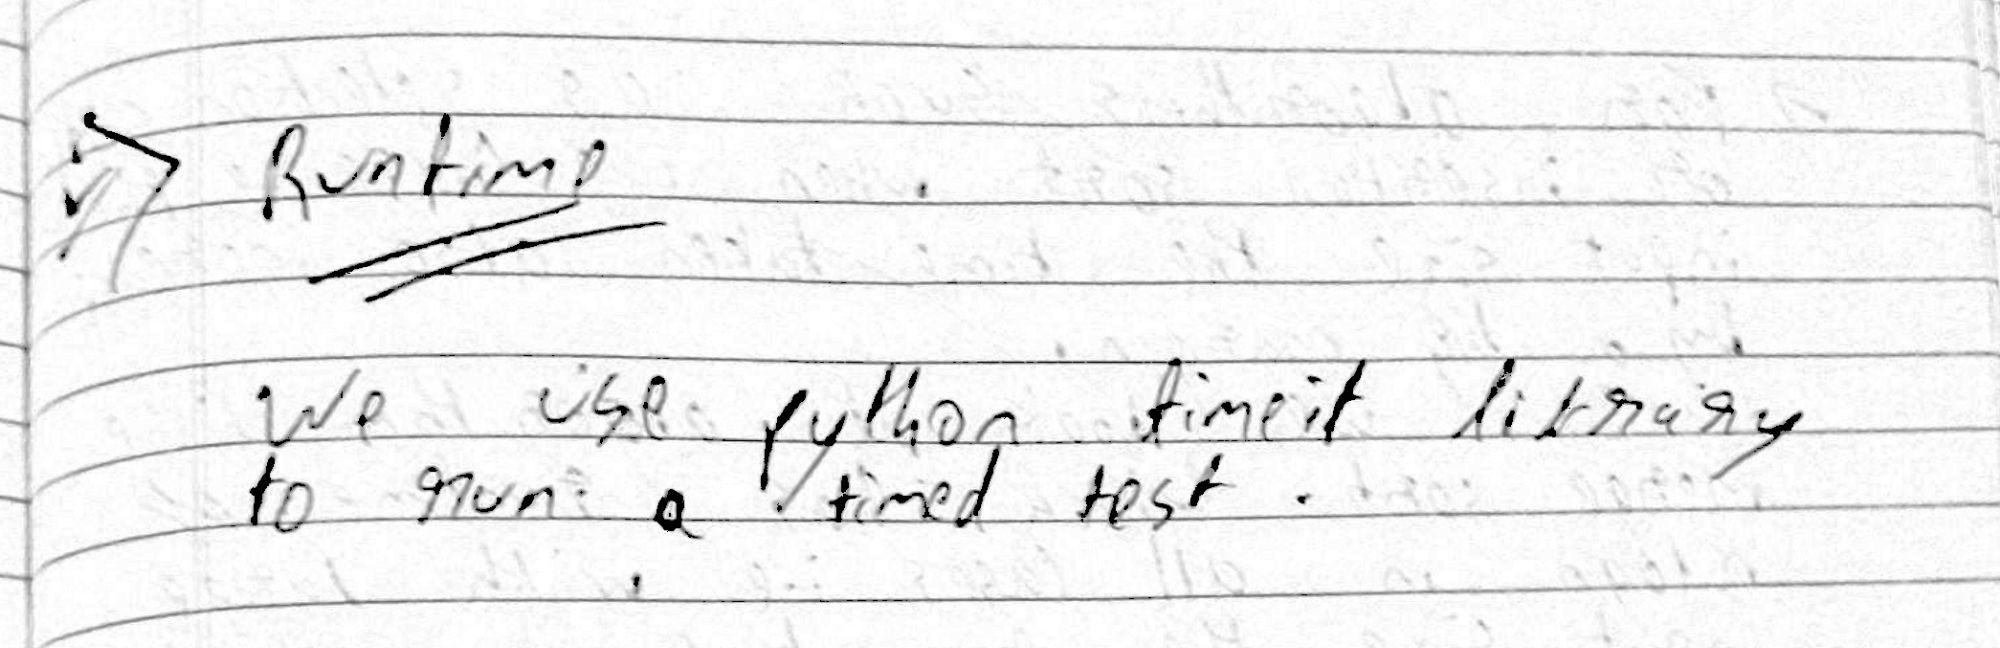 Runtime
We use python timeit library
to run a timed test.